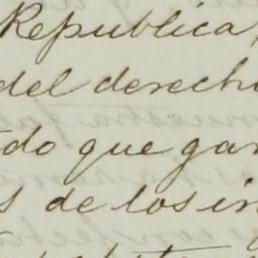 Republica,
del derecho
do que gar
s de los in